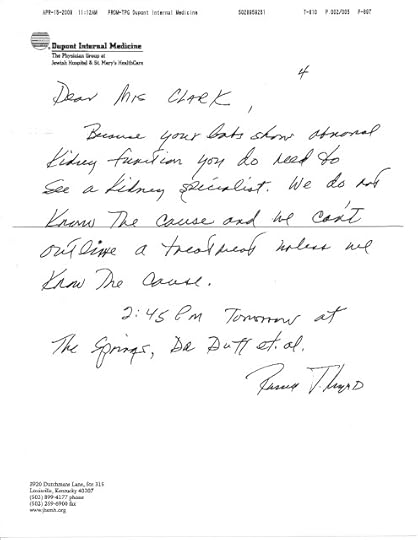 APR-15-2009 11:12AM FROM-TPG Dupont Internal Medicine 5028958251 T-810 P.002/003 F-807
Dupont Internal Medicine
The Physician Group of
Jewish Hospital & St. Mary's HealthCare
4
Dear Mrs CLARK,
Because your labs show abnomal
Kidney function you do need to
See a Kidney specialist. We do not
Know The cause and we can't
outline a treatment unless we
Know The Cause.
2:45 PM Tomorrow at
The Springs, Dr Dutt et. al.
3920 Dutchmans Lane, Ste 315
Louisville, Kentucky 40207
(502) 899-4177 phone
(502) 259-6900 fax
www.jhsmh.org